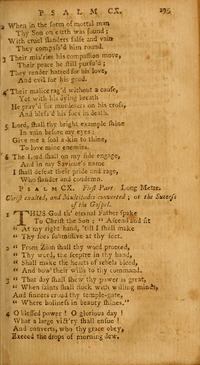 PSALM CX. 295
2 When in the form of mortal man
Thy Son on earth was found;
With cruel slanders false and vain
They compass'd him round.
3 Their mis'ries his compassion move,
Their peace he still pursu'd;
They render hatred for his love,
And evil for his good.
4 Their malice rag'd without a cause,
Yet with his dying breath
He pray'd for murderers on his cross,
And bless'd his foes in death.
5 Lord, shall thy bright example shine
In vain before my eyes?
Give me a soul a-kin to thine,
To love mine enemies.
6 The Lord shall on my side engage,
And in my Saviour's name
I shall defeat their pride and rage,
Who slander and condemn.
PSALM CX. First Part. Long Metre.
Christ exalted, and Multitudes converted; or the Success
of the Gospel.
1 THUS God th' eternal Father spake
To Christ the Son; "Ascend and sit
" At my right hand, 'till I shall make
" Thy foes submissive at thy feet.
2 " From Zion shall thy word proceed,
" Thy word, the sceptre in thy hand,
" Shall make the hearts of rebels bleed,
" And bow their wills to thy command.
3 " That day shall shew thy power is great,
" When saints shall flock with willing minds,
And sinners croud thy temple-gate,
" Where holiness in beauty shines."
4 O blessed power! O glorious day!
What a large vict'ry shall ensue!
And converts, who thy grace obey,
Exceed the drops of morning dew.